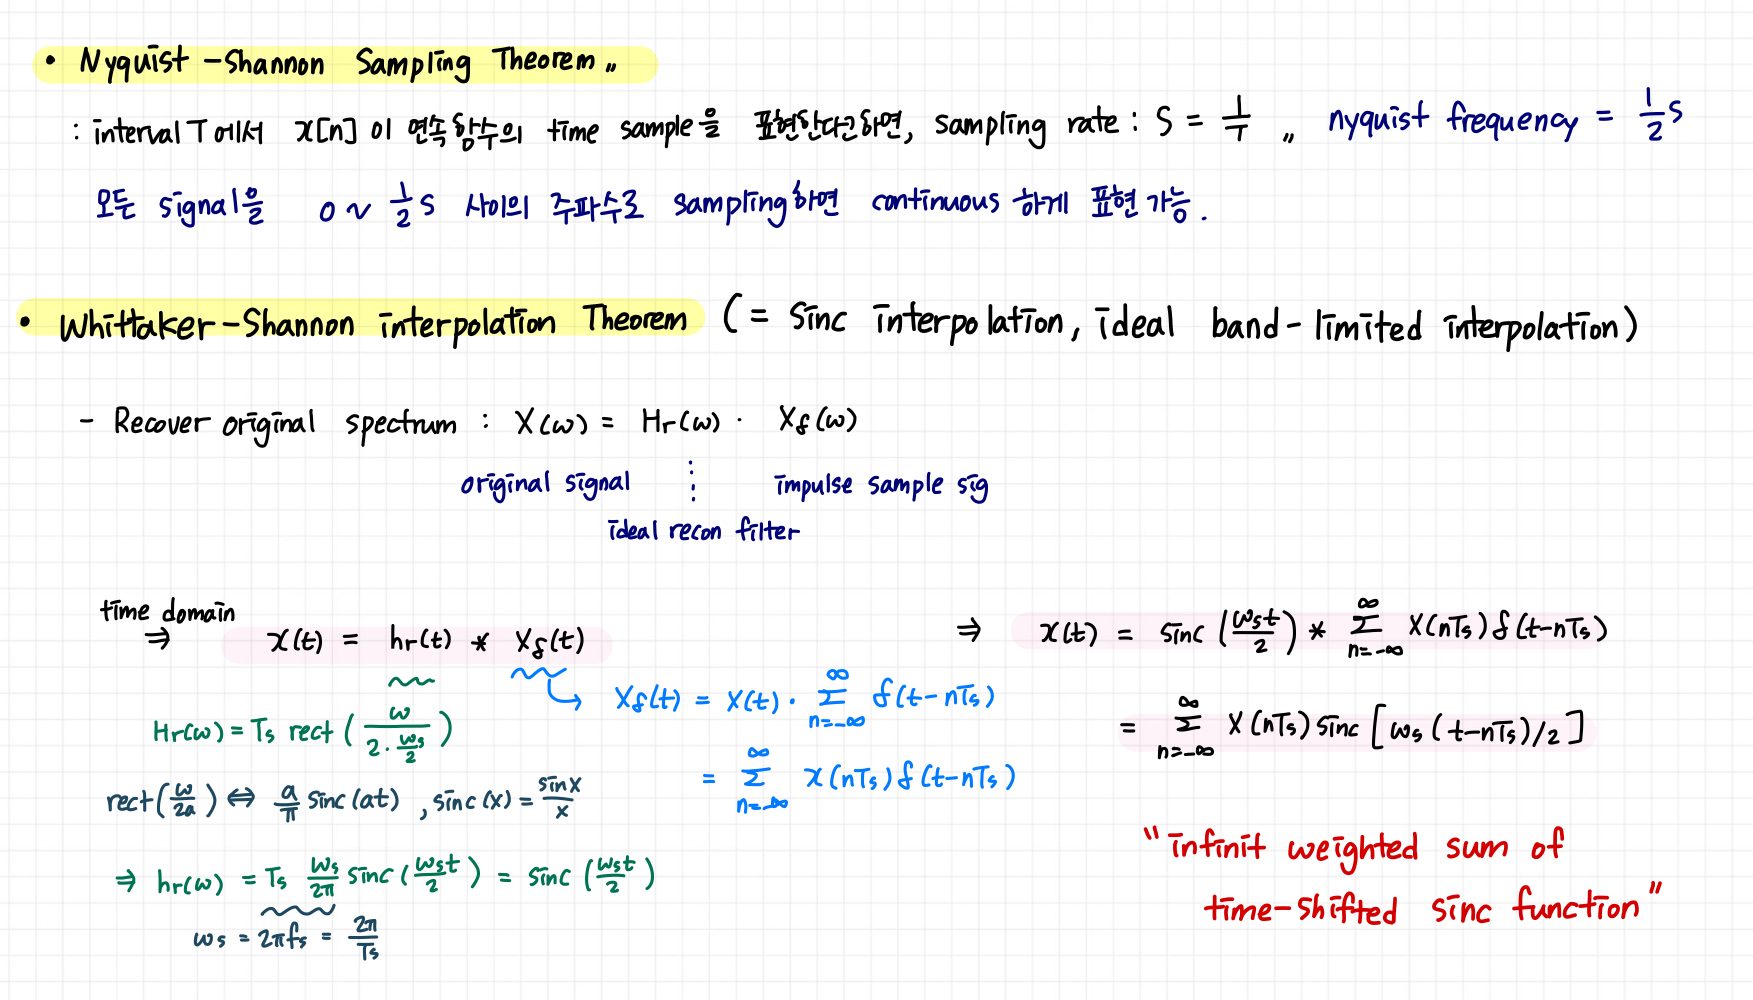 • Nyquist-Shannon Sampling Theorem „
: interval T에서 x[n]이 연속함수의 time sample을 표현한다고하면, sampling rate : S = 1/T „ nyquist frequency = 1/2 S
모든 signal을 0 ~ 1/2 S 사이의 주파수로 sampling하면 continuous 하게 표현 가능.
• Whittaker-Shannon interpolation Theorem (= Sinc interpolation, ideal band-limited interpolation)
- Recover original spectrum : X(ω) = Hr(ω) · Xδ(ω)
original signal ⋮ impulse sample sig
ideal recon filter
time domain
⇒ x(t) = hr(t) * Xδ(t)
Hr(ω) = Ts rect(ω / (2·ωs/2))
rect(ω/2a) ⇔ a/π sinc(at), sinc(x) = sinx/x
⇒ hr(ω) = Ts ωs/2π sinc(ωst/2) = sinc(ωst/2)
ωs = 2πfs = 2π/Ts
Xδ(t) = X(t) · Σ n=-∞ ∞ δ(t-nTs)
= Σ n=-∞ ∞ x(nTs)δ(t-nTs)
⇒ x(t) = sinc(ωst/2) * Σ n=-∞ ∞ X(nTs)δ(t-nTs)
= Σ n=-∞ ∞ X(nTs) sinc[ωs(t-nTs)/2]
"infinit weighted sum of
time-shifted sinc function"